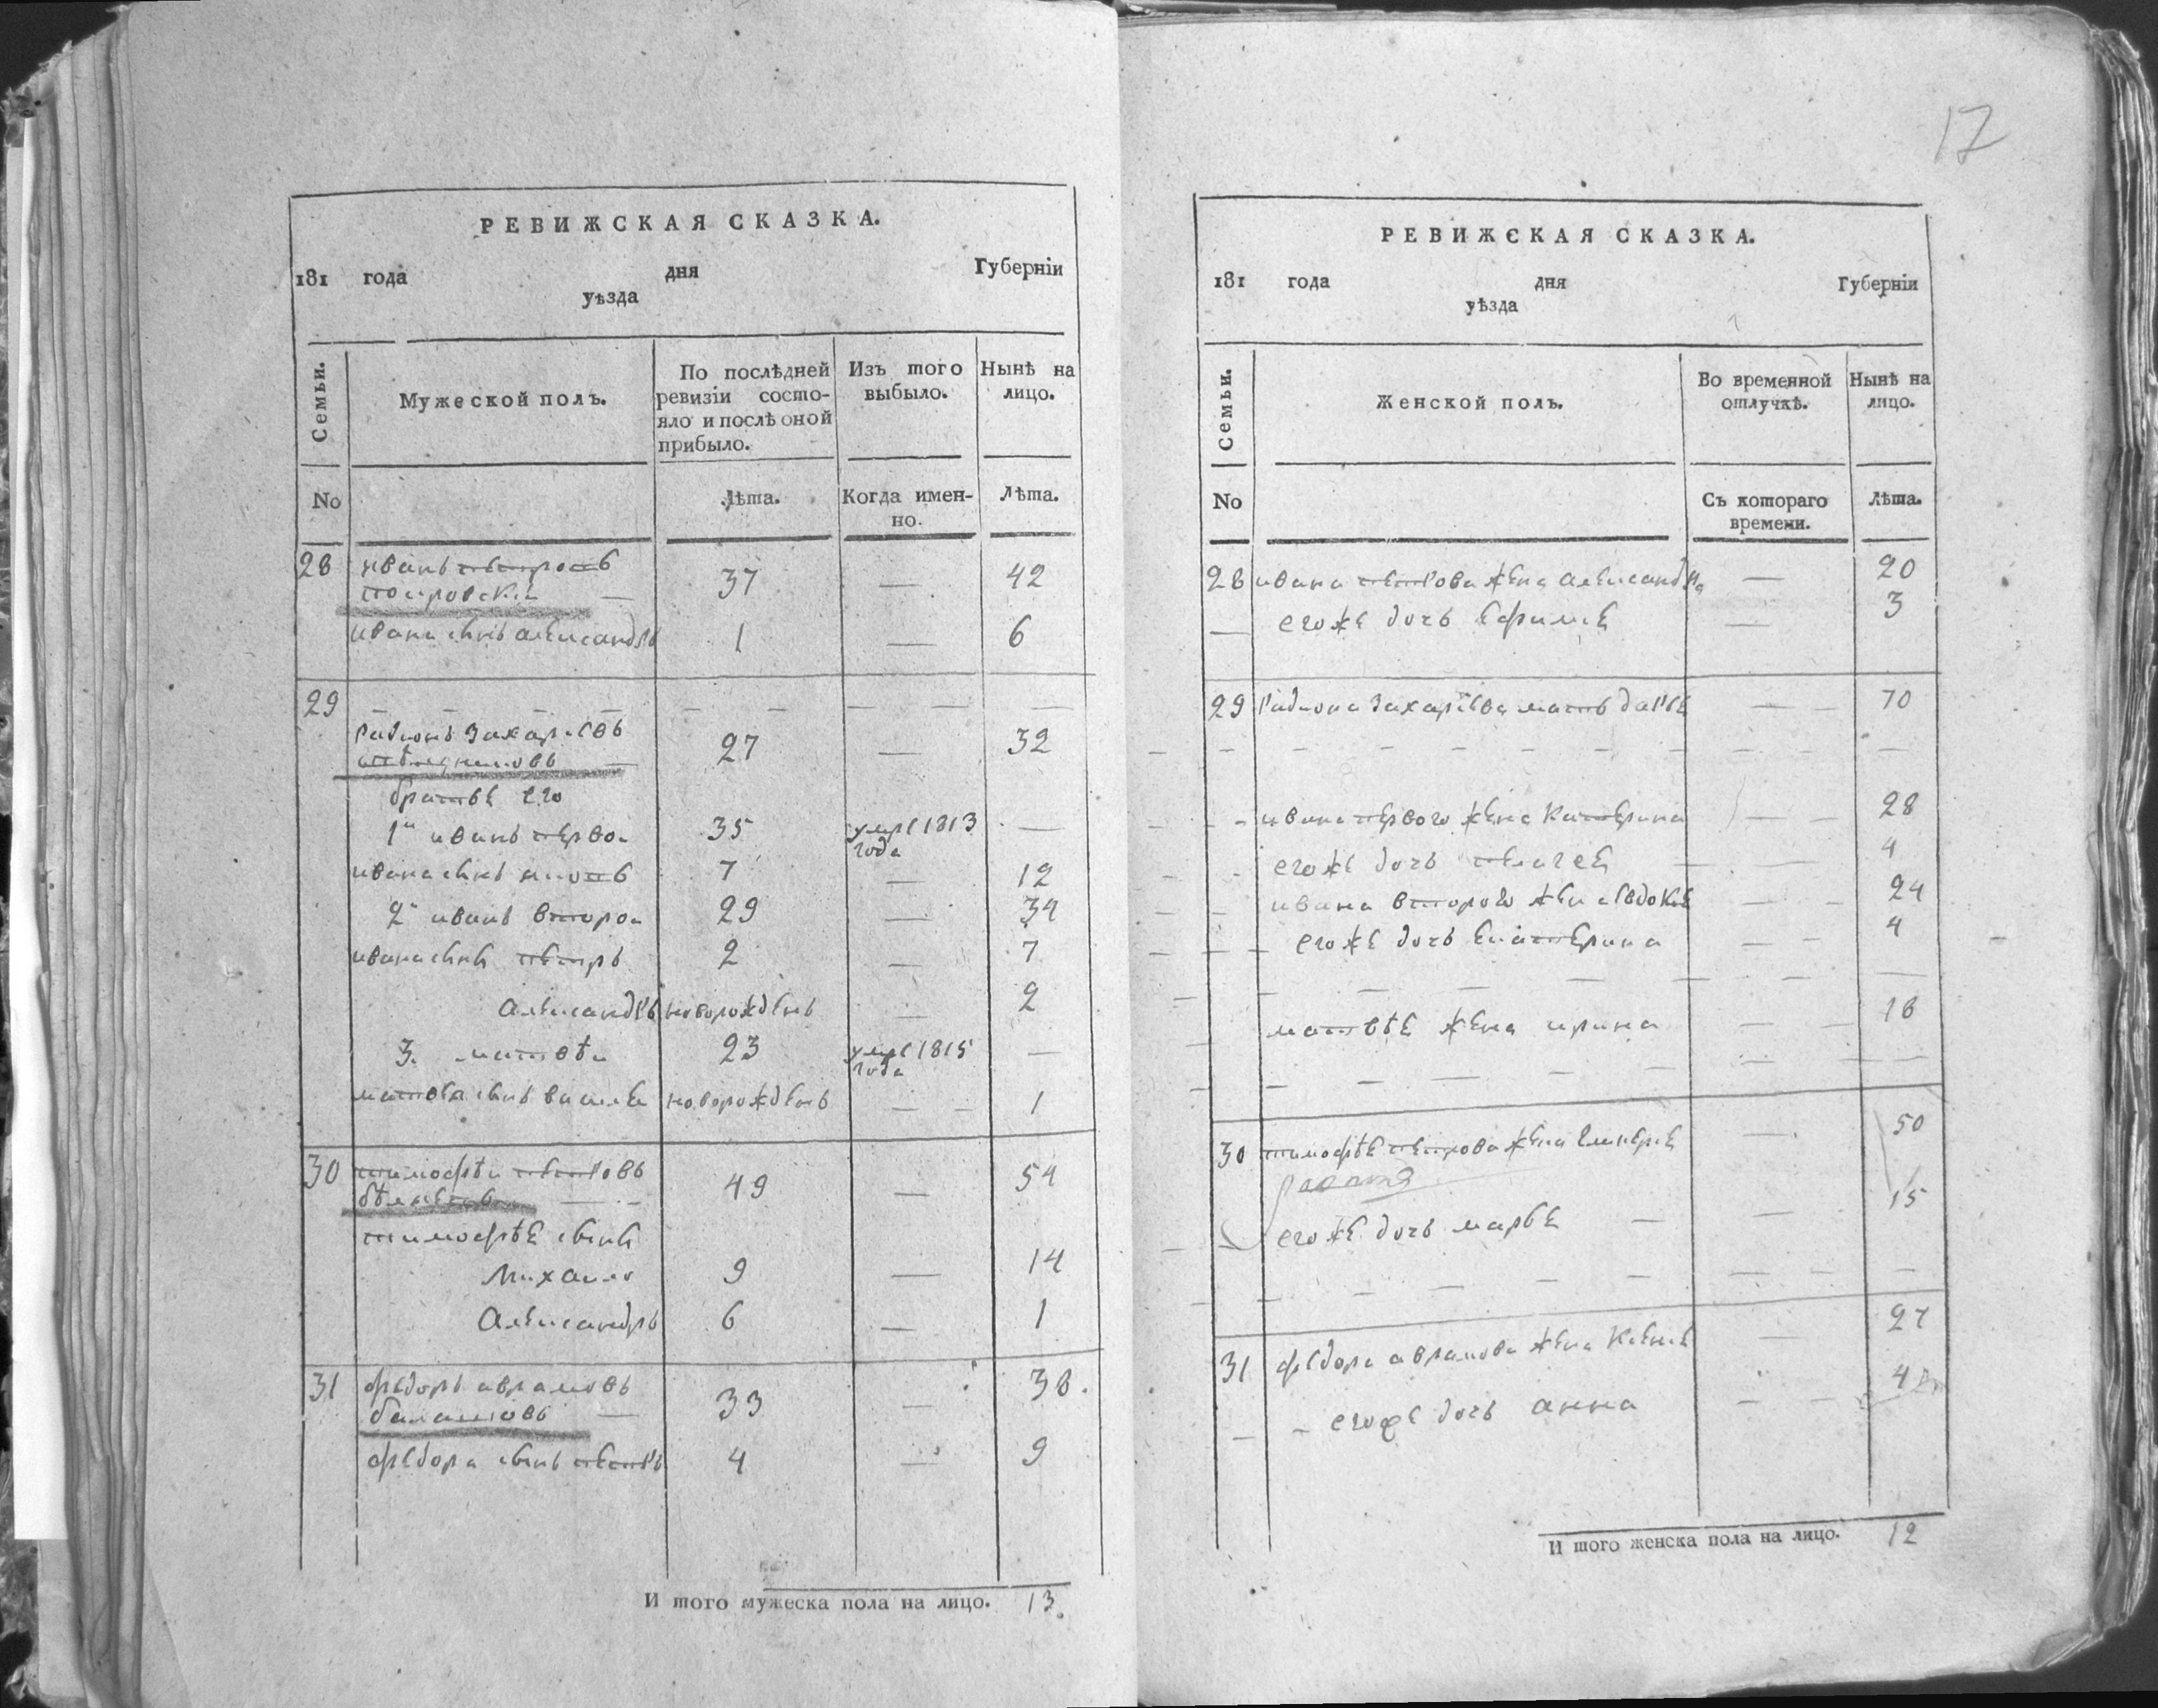 РЕВИЖСКАЯ СКАЗКА.
181 года дня Губернїи
уѣзда
Семьи.
Мужеской полъ.
По послѣдней ревизїи состо-
яло и послѣ оной
прибыло.
Изъ того
выбыло.
Нынѣ на
лицо.
No
Лѣта.
Когда имен-
но.
Лѣта.
28 иванъ петровъ
37 — 42
ивана сынъ александръ 1 — 6
29
радионъ захаровъ
27 — 32
братье его
1й иванъ первои 35 умре 1813 года —
ивана сынъ 7 — 12
2й иванъ второи 29 — 34
ивана сынъ петръ 2 — 7
александръ новорожденъ — 2
3. матвѣи 23 умре 1815 года —
матвѣя сынъ василеи новорожденъ — 1
30 тимофѣи петровъ
49 — 54
тимофѣе сынъ
михаило 9 — 14
александръ 6 — 1
31 федоръ аврамовъ
балашовъ 33 — 38.
федора сынъ петръ 4 — 9
И того мужеска пола на лицо. 13.
17
РЕВИЖСКАЯ СКАЗКА.
181 года дня Губернїи
уѣзда
Семьи.
Женской полъ.
Во временной
отлучкѣ.
Нынѣ на
лицо.
No
Съ котораго
времени.
Лѣта.
28 ивана петрова жена александра — 20
— егоже дочь ефиме — 3
29 радиона захарова мать дарье — 70
ивана первого жена катерина — 28
егоже дочь пелагее — 4
ивана второго жена евдокие — 24
егоже дочь екатерина — 4
матвѣе жена ирина — 18
30 тимофѣе петрова жена — 50
егоже дочь марѳе — 15
31 федора аврамова жена — 27
егоже дочь анна — 4
И того женска пола на лицо. 12